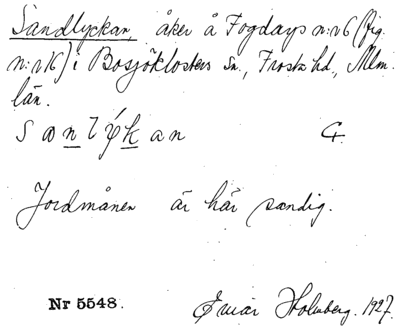 Sandlyckan, åker å Fogdays n:r 6 (fig.
n:r 16) i Bosjöklosters sn., Frosta hd., Mlm.
län.
Jordmånen är här sandig.
Nr 5548. Einar Holmberg. 1927.